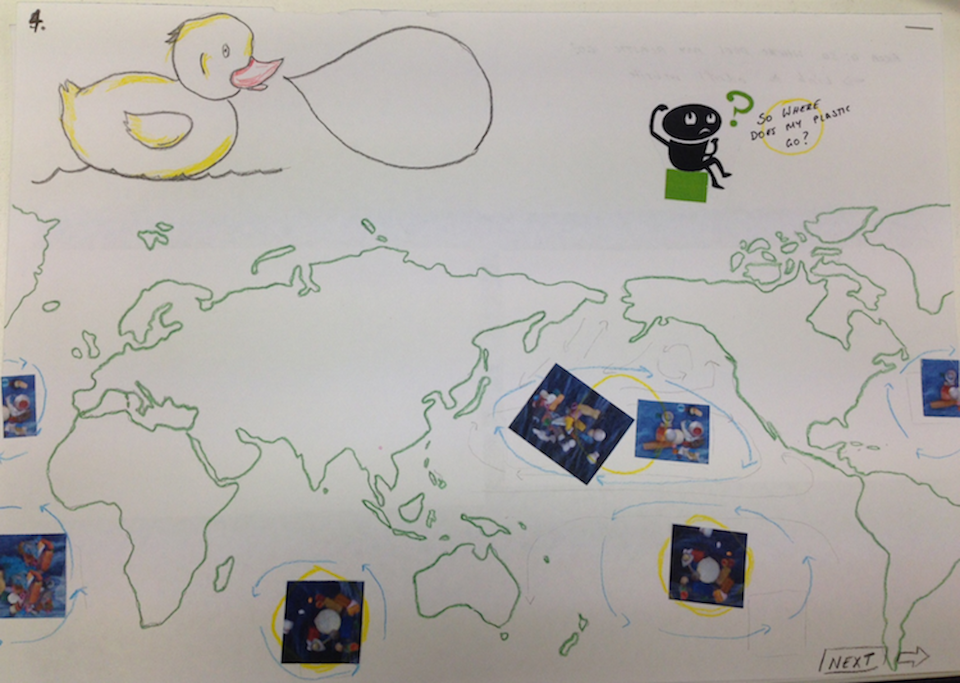 4.
?
SO WHERE
DOES MY PLASTIC
GO?
NEXT